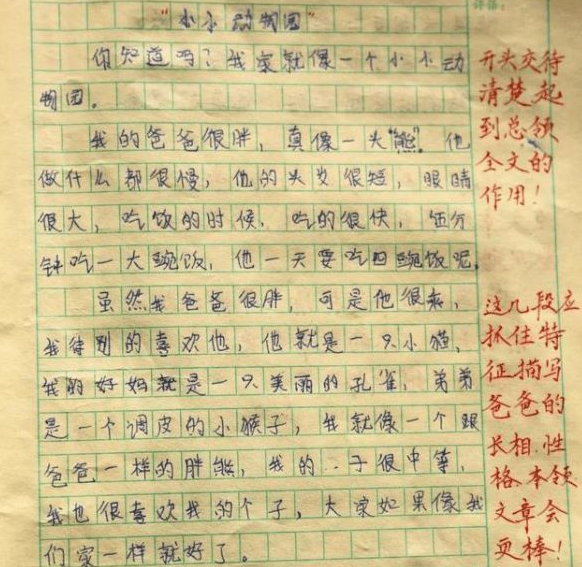 “小小动物园”
你知道吗？我家就像一个小小动
物园。
我的爸爸很胖，真像一头“熊”。他
做什么都很慢，他的头发很短，眼睛
很大，吃饭的时候，吃的很快，伍分
钟吃一大碗饭，他一天要吃四碗饭呢。
虽然我爸爸很胖，可是他很乖，
我待别的喜欢他，他就是一只小猫，
我的好妈就是一只美丽的孔雀，弟弟
是一个调皮的小猴子，我就像一个跟
爸爸一样的胖熊，我的子很中等，
我也很喜欢我的个子，大家如果像我
们家一样就好了。
评语：
开头交待
清楚起
到总领
全文的
作用！
这几段应
抓住特
征描写
爸爸的
长相.性
格.本领
文章会
更棒！